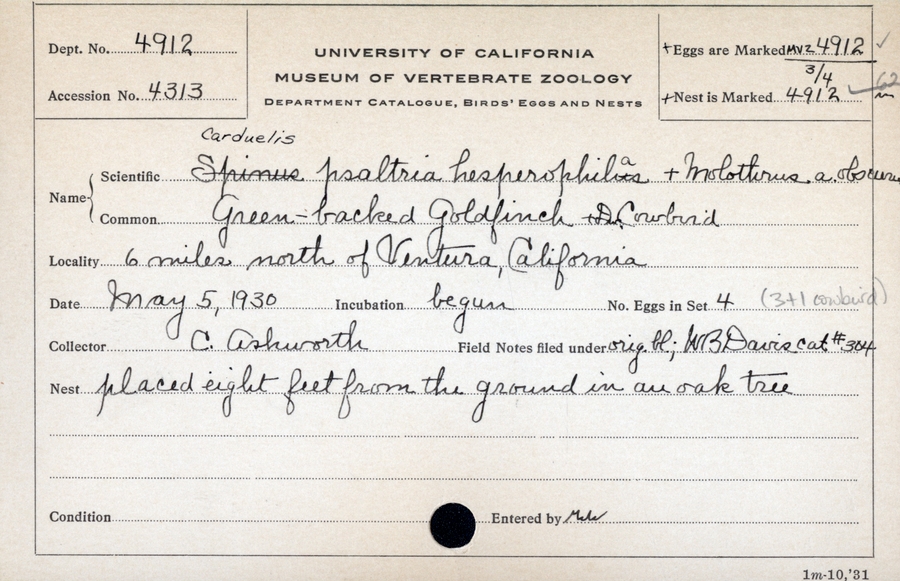 Dept. No. 4912
Accession No. 4313
UNIVERSITY OF CALIFORNIA
MUSEUM OF VERTEBRATE ZOOLOGY
DEPARTMENT CATALOGUE, BIRDS' EGGS AND NESTS
+Eggs are Marked MVZ 4912 ✓
3/4
+Nest is Marked 4912
Carduelis
Name Scientific Spinus psaltria hesperophilus a + Molothrus a. obscurus
Common Green-backed Goldfinch + D. Cowbird
Locality 6 miles north of Ventura, California
Date May 5, 1930 Incubation begun No. Eggs in Set 4 (3+1 cowbird)
Collector C. Ashworth Field Notes filed under orig. bl; WB Davis cat #304
Nest placed eight feet from the ground in an oak tree
Condition Entered by
1m-10,'31